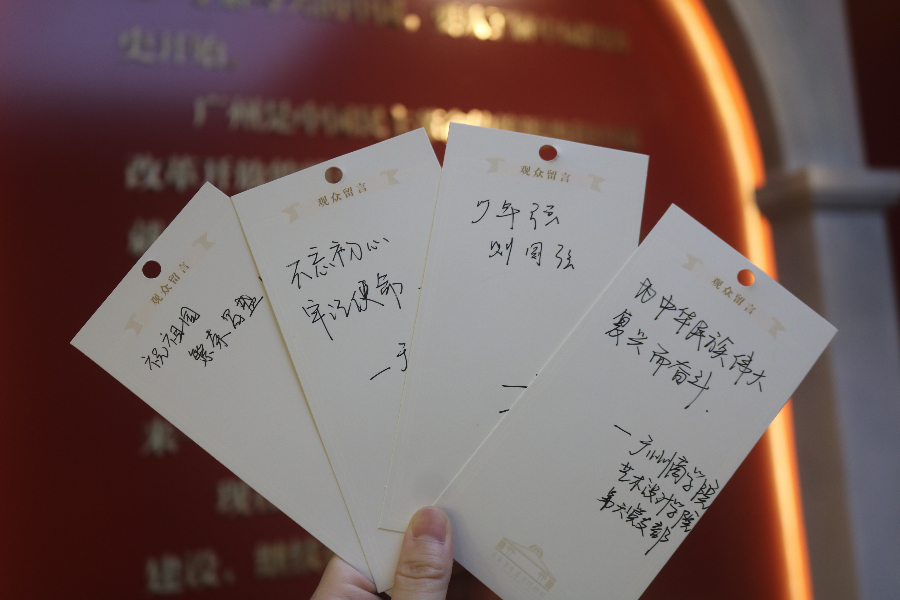 广州是中国民主
改革开放的
建设、继续
观众留言
祝祖国
繁荣昌盛
观众留言
不忘初心
牢记使命
—广
观众留言
少年强
则国强
观众留言
为中华民族伟大
复兴而奋斗.
—广州商学院
艺术设计学院
第六党支部